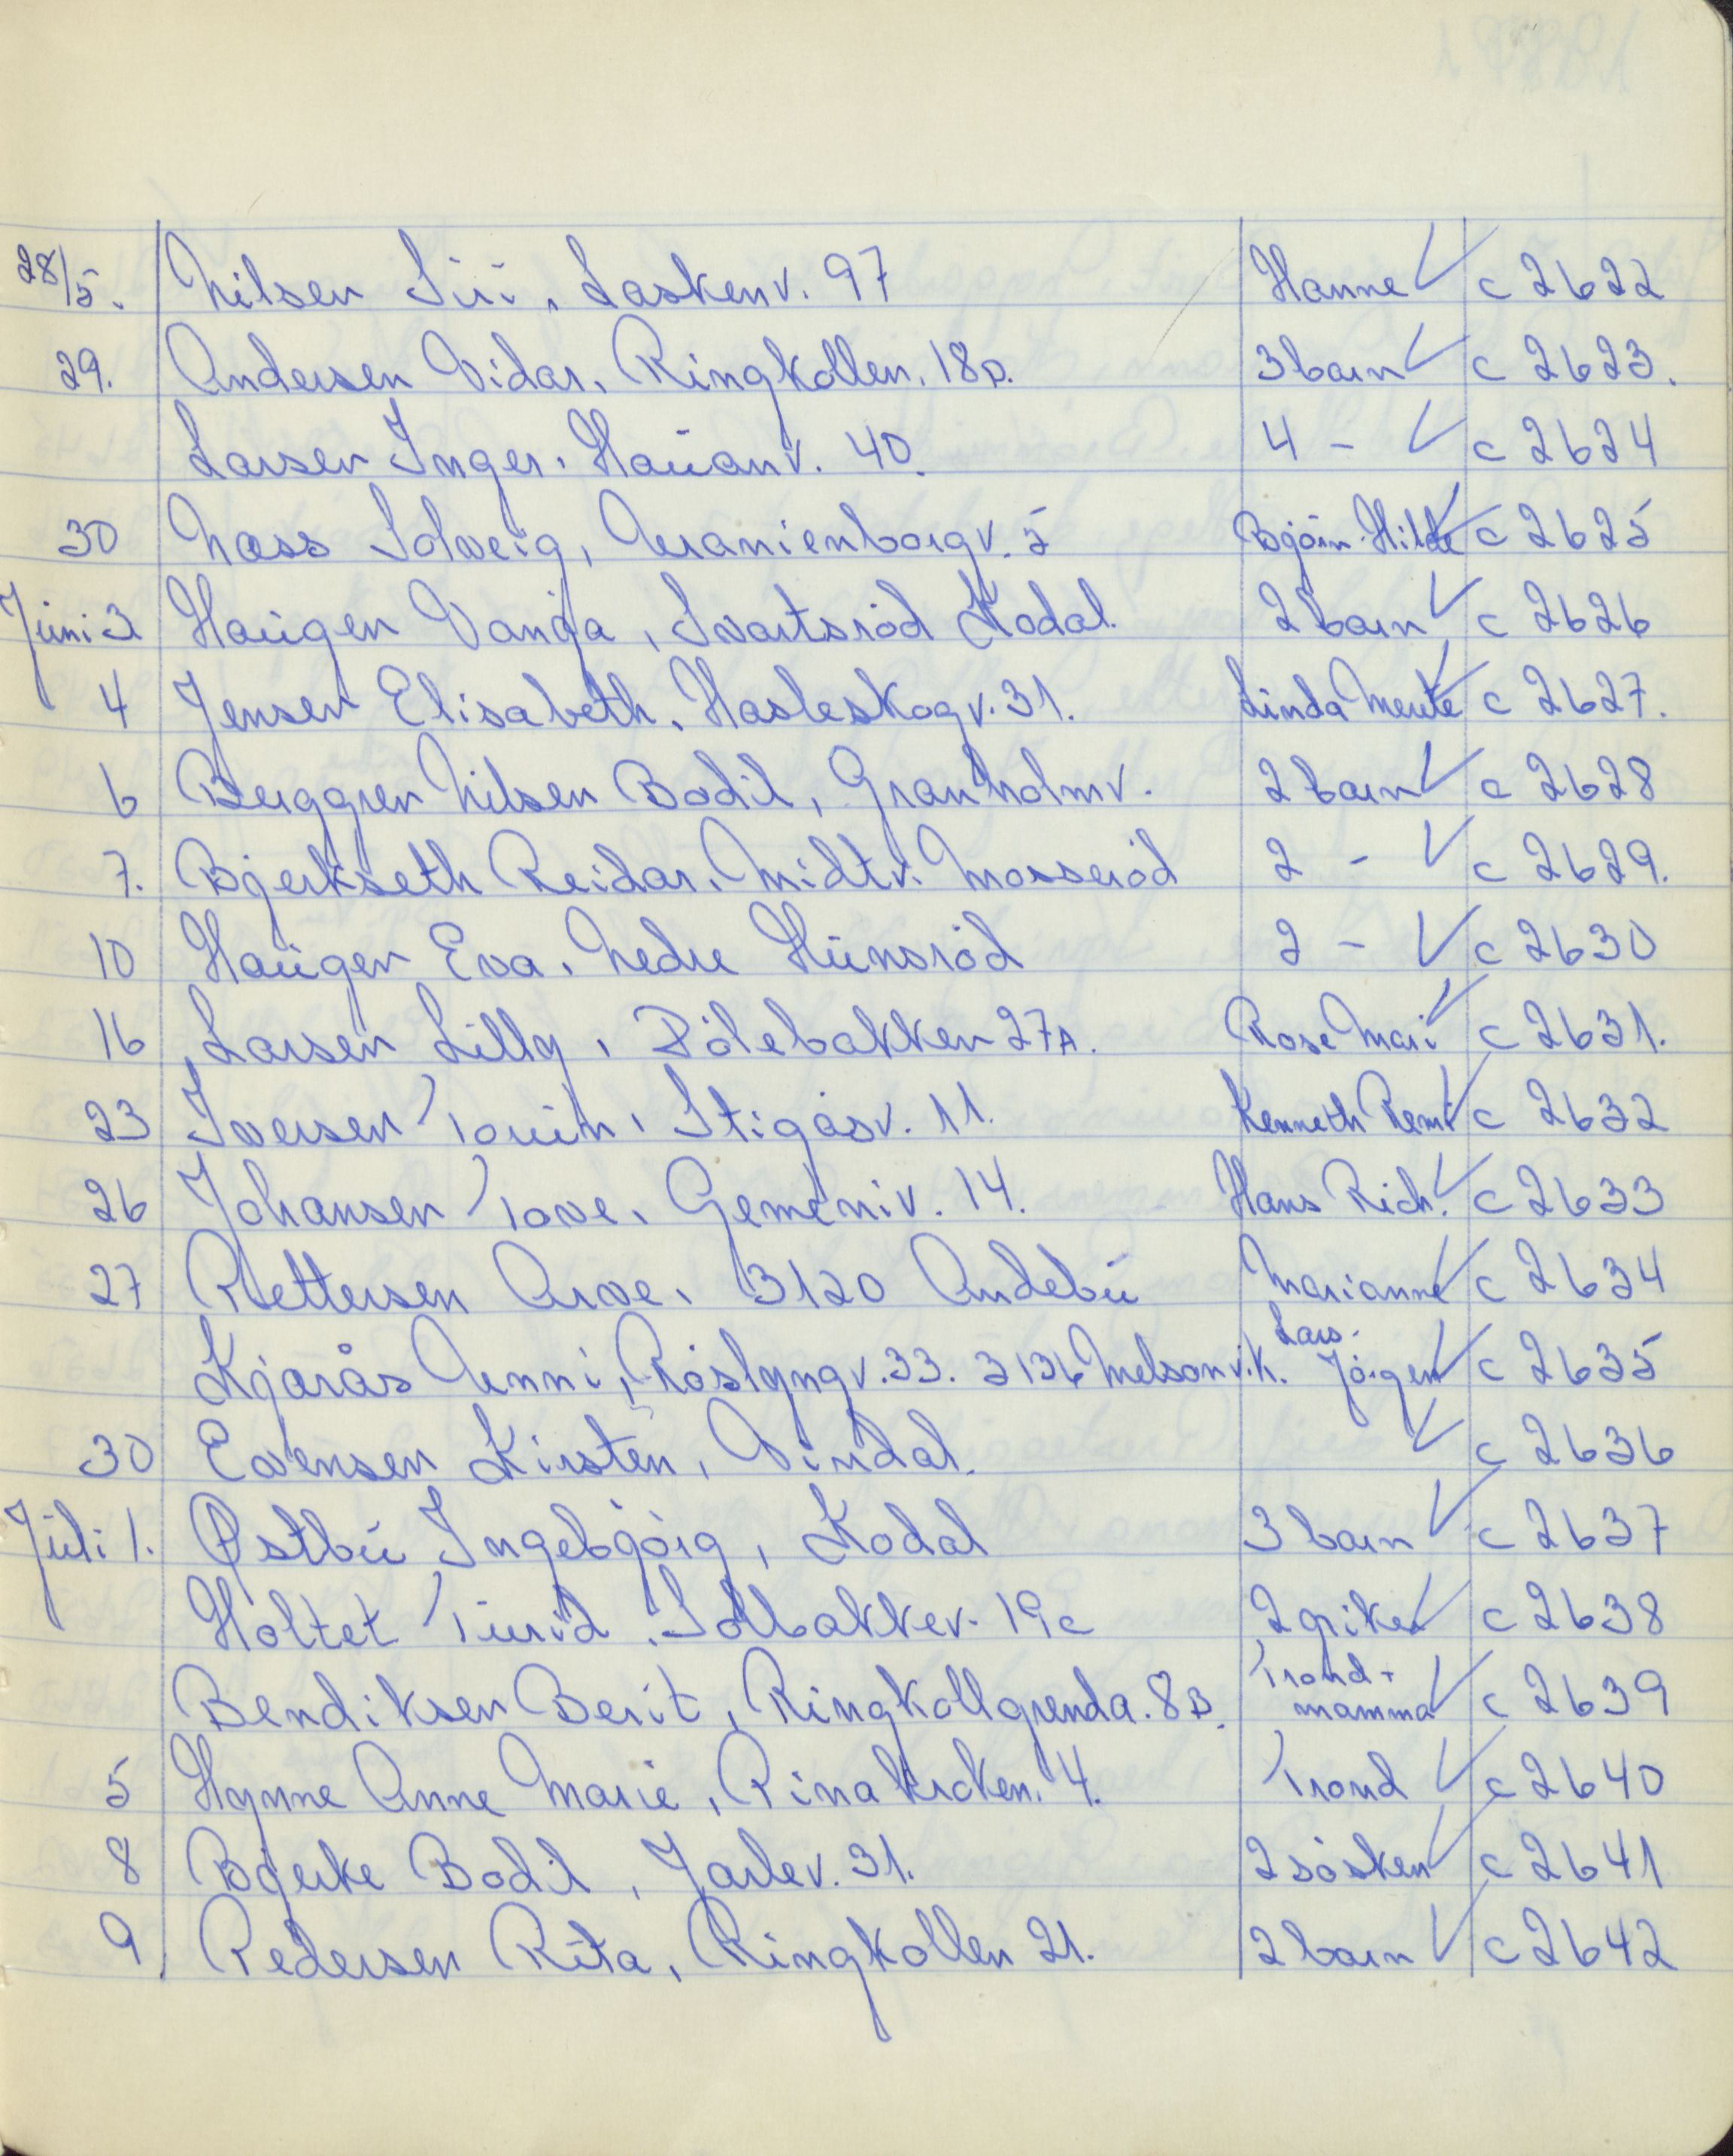 28/5. Nilsen Siri, Laskenv. 97 Hanne ✓ c 2622
29. Andersen Vidar, Ringkollen. 18D. 3 barn ✓ c 2623.
Larsen Inger. Hauanv. 40. 4 - ✓ c 2624
30 Næss Solveig, Uranienborgv. 5 Bjørn-Hilde ✓ c 2625
Juni 3 Haugen Vanja, Svartsrød Kodal. 2 barn ✓ c 2626
4 Jensen Elisabeth. Hasleskogv. 31. Linda Merete ✓ c 2627.
6 Berggren Nilsen Bodil, Granholmv. 2 barn ✓ c 2628
7. Bjerkseth Reidar. Midtv. Mosserød 2 - ✓ c 2629.
10 Haugen Eva. Nedre Hunsrød 2 - ✓ c 2630
16 Larsen Lilly, Pølebakken 27A. Rose Mari ✓ c 2631.
23 Iversen Torun, Stigåsv. 11. Kenneth Remi ✓ c 2632
26 Johansen Tove. Geminiv. 14. Hans Rich. ✓ c 2633
27 Rettersen Arve. 3120 Andebu Marianne ✓ c 2634
Kjarås Unni, Røslyngv. 33. 3136 Melsomvik. Lars-
Jørgen ✓ c 2635
30 Evensen Kirsten, Vindal. ✓ c 2636
Juli 1. Østbu Ingebjørg, Kodal 3 barn ✓ c 2637
Holtet Turid. Solbakkev. 19c 2 piker ✓ c 2638
Bendiksen Berit, Ringkollgrenda. 8B. Trond +
mamma ✓ c 2639
5 Hynne Anne Marie, 4. Trond ✓ c 2640
8 Bjerke Bodil, Jarlev. 31. 2 søsken ✓ c 2641
9. Pedersen Rita, Ringkollen 21. 2 barn ✓ c 2642